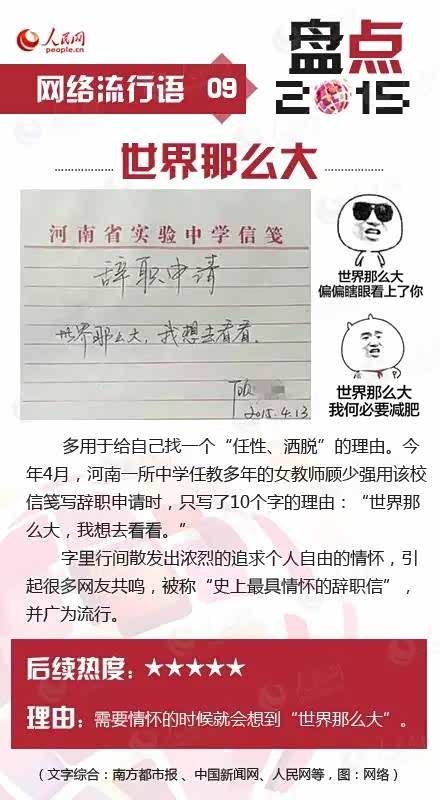 人民网
people.cn
盘点
2015
网络流行语 09
世界那么大
河南省实验中学信笺
辞职申请
世界那么大，我想去看看。
顾
2015.4.13
世界那么大
偏偏瞎眼看上了你
世界那么大
我何必要减肥
多用于给自己找一个“任性、洒脱”的理由。今
年4月，河南一所中学任教多年的女教师顾少强用该校
信笺写辞职申请时，只写了10个字的理由：“世界那
么大，我想去看看。”
字里行间散发出浓烈的追求个人自由的情怀，引
起很多网友共鸣，被称“史上最具情怀的辞职信”，
并广为流行。
后续热度：★★★★★
理由：需要情怀的时候就会想到“世界那么大”。
（文字综合：南方都市报、中国新闻网、人民网等，图：网络）